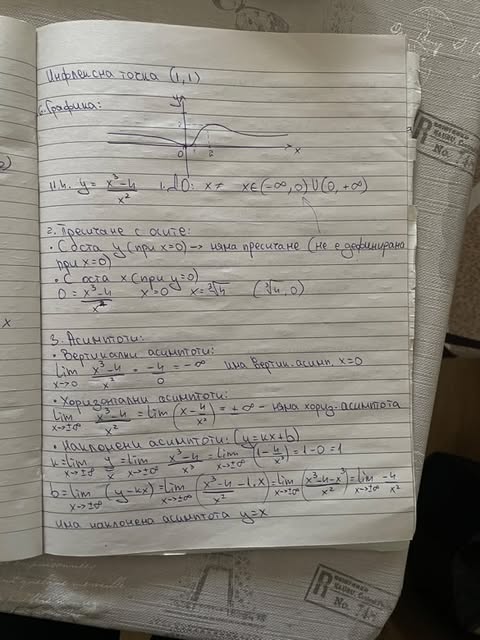 Инфлексна точка (1,1)
6. Графика:
y
x
0
1
2
11.4. y = x³-4 / x² 1. ДО: x ≠ x∈(-∞,0)∪(0,+∞)
2. Пресичане с осите:
• С оста y (при x=0) → няма пресичане (не е дефинирана
при x=0)
• С оста x (при y=0)
0 = x³-4 / x² x³=0 x=∛4 (∛4, 0)
3. Асимптоти:
• Вертикални асимптоти:
lim x→0 x³-4 / x² = -4 / 0 = -∞ има вертик. асимп. x=0
• Хоризонтални асимптоти:
lim x→±∞ x³-4 / x² = lim x→±∞ (x - 4 / x²) = ±∞ - няма хориз. асимптота
• Наклонени асимптоти: (y=kx+b)
k = lim x→±∞ y / x = lim x→±∞ x³-4 / x³ = lim x→±∞ (1 - 4 / x³) = 1-0 = 1
b = lim x→±∞ (y-kx) = lim x→±∞ (x³-4 / x² - 1.x) = lim x→±∞ (x³-4-x³ / x²) = lim x→±∞ -4 / x²
има наклонена асимптота y=x
R
No. 74
R
No. 74
x